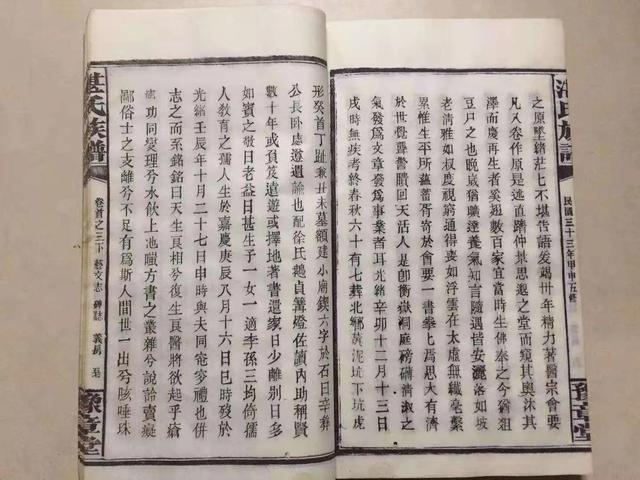 湛氏族譜
民國三十三年甲申五修
豫章堂
之原墜緒茫乚不堪告語爰竭卅年精力著醫宗會要
凡八卷作原是逃直踏仲景思邈之堂而窺其奧沫其
澤而慶再生者奚翅數百家宜當時生佛奉之今猶俎
豆尸之也晚歲曠達養氣知言隨遇皆安灑落如坡
老清雅如叔度視窮通得喪如浮雲在太虛無纖毫繫
累惟生平所蘊蓄胥寄於會要一書拳乚焉思大有濟
於世聾聵回天活人是卽衡嶽洞庭磅礴清淑之
氣發爲文章發爲事業者耳光緒辛卯十二月十三日
戌時無疾考終於春秋六十有七葬北鄉黃泥坑下坑虎
形癸首丁趾兼丑未墓額建小廟鍥六字於石曰辛
公長卧處遵遺諭也配徐氏德貞篝燈佐讀內助稱賢
數十年或負笈遠遊或擇地著書還家日少離別日多
如賓之敬日老益日甚生子一女一適李孫三均倚儒
人教育之孺人生於嘉慶庚辰八月十六日巳時歿於
光緒壬辰年十月二十七日申時與夫同窀穸禮也併
志之而系銘銘曰天生良相兮復生良醫將欲起乎瘡
痍功同爕理兮水飲上池臘方書之叢雜兮說論賣癡
鄙俗士之支離兮不足有爲斯人間世一出兮咳唾珠
湛氏族譜
卷首之三下
藝文志
碑誌
豫章堂